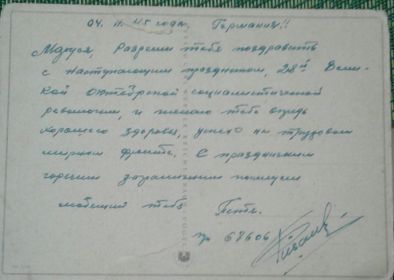 04. 11. 45 года, Германия!!
Маруся, разреши тебя поздравить
с наступающим праздником, 28й Вели-
кой Октябрской социалистической
революции, и желаю тебе
хорошего здоровья, успех на трудовом
мирном фронте. С праздничным
горячим
любящий тебя Петь.
пр 68606